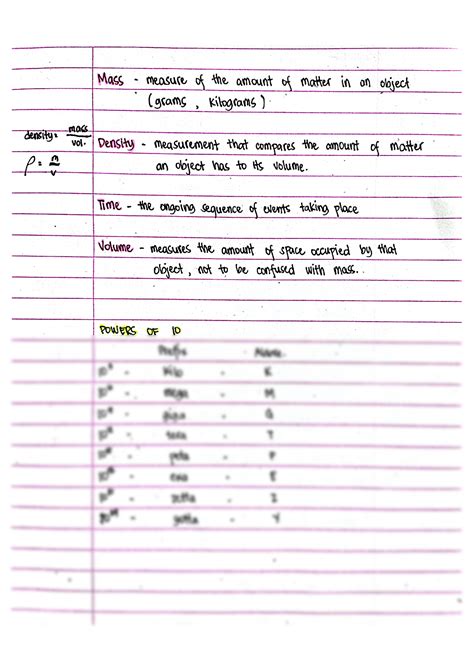 Mass - measure of the amount of matter in an object
(grams, kilograms)
density = mass
vol.
Density - measurement that compares the amount of matter
an object has to its volume.
ρ = m
v
Time - the ongoing sequence of events taking place
Volume - measures the amount of space occupied by that
object, not to be confused with mass.
POWERS OF 10
Prefix Name
kilo - K
mega - M
giga - G
tera - T
peta - P
exa - E
zetta
yotta - Y